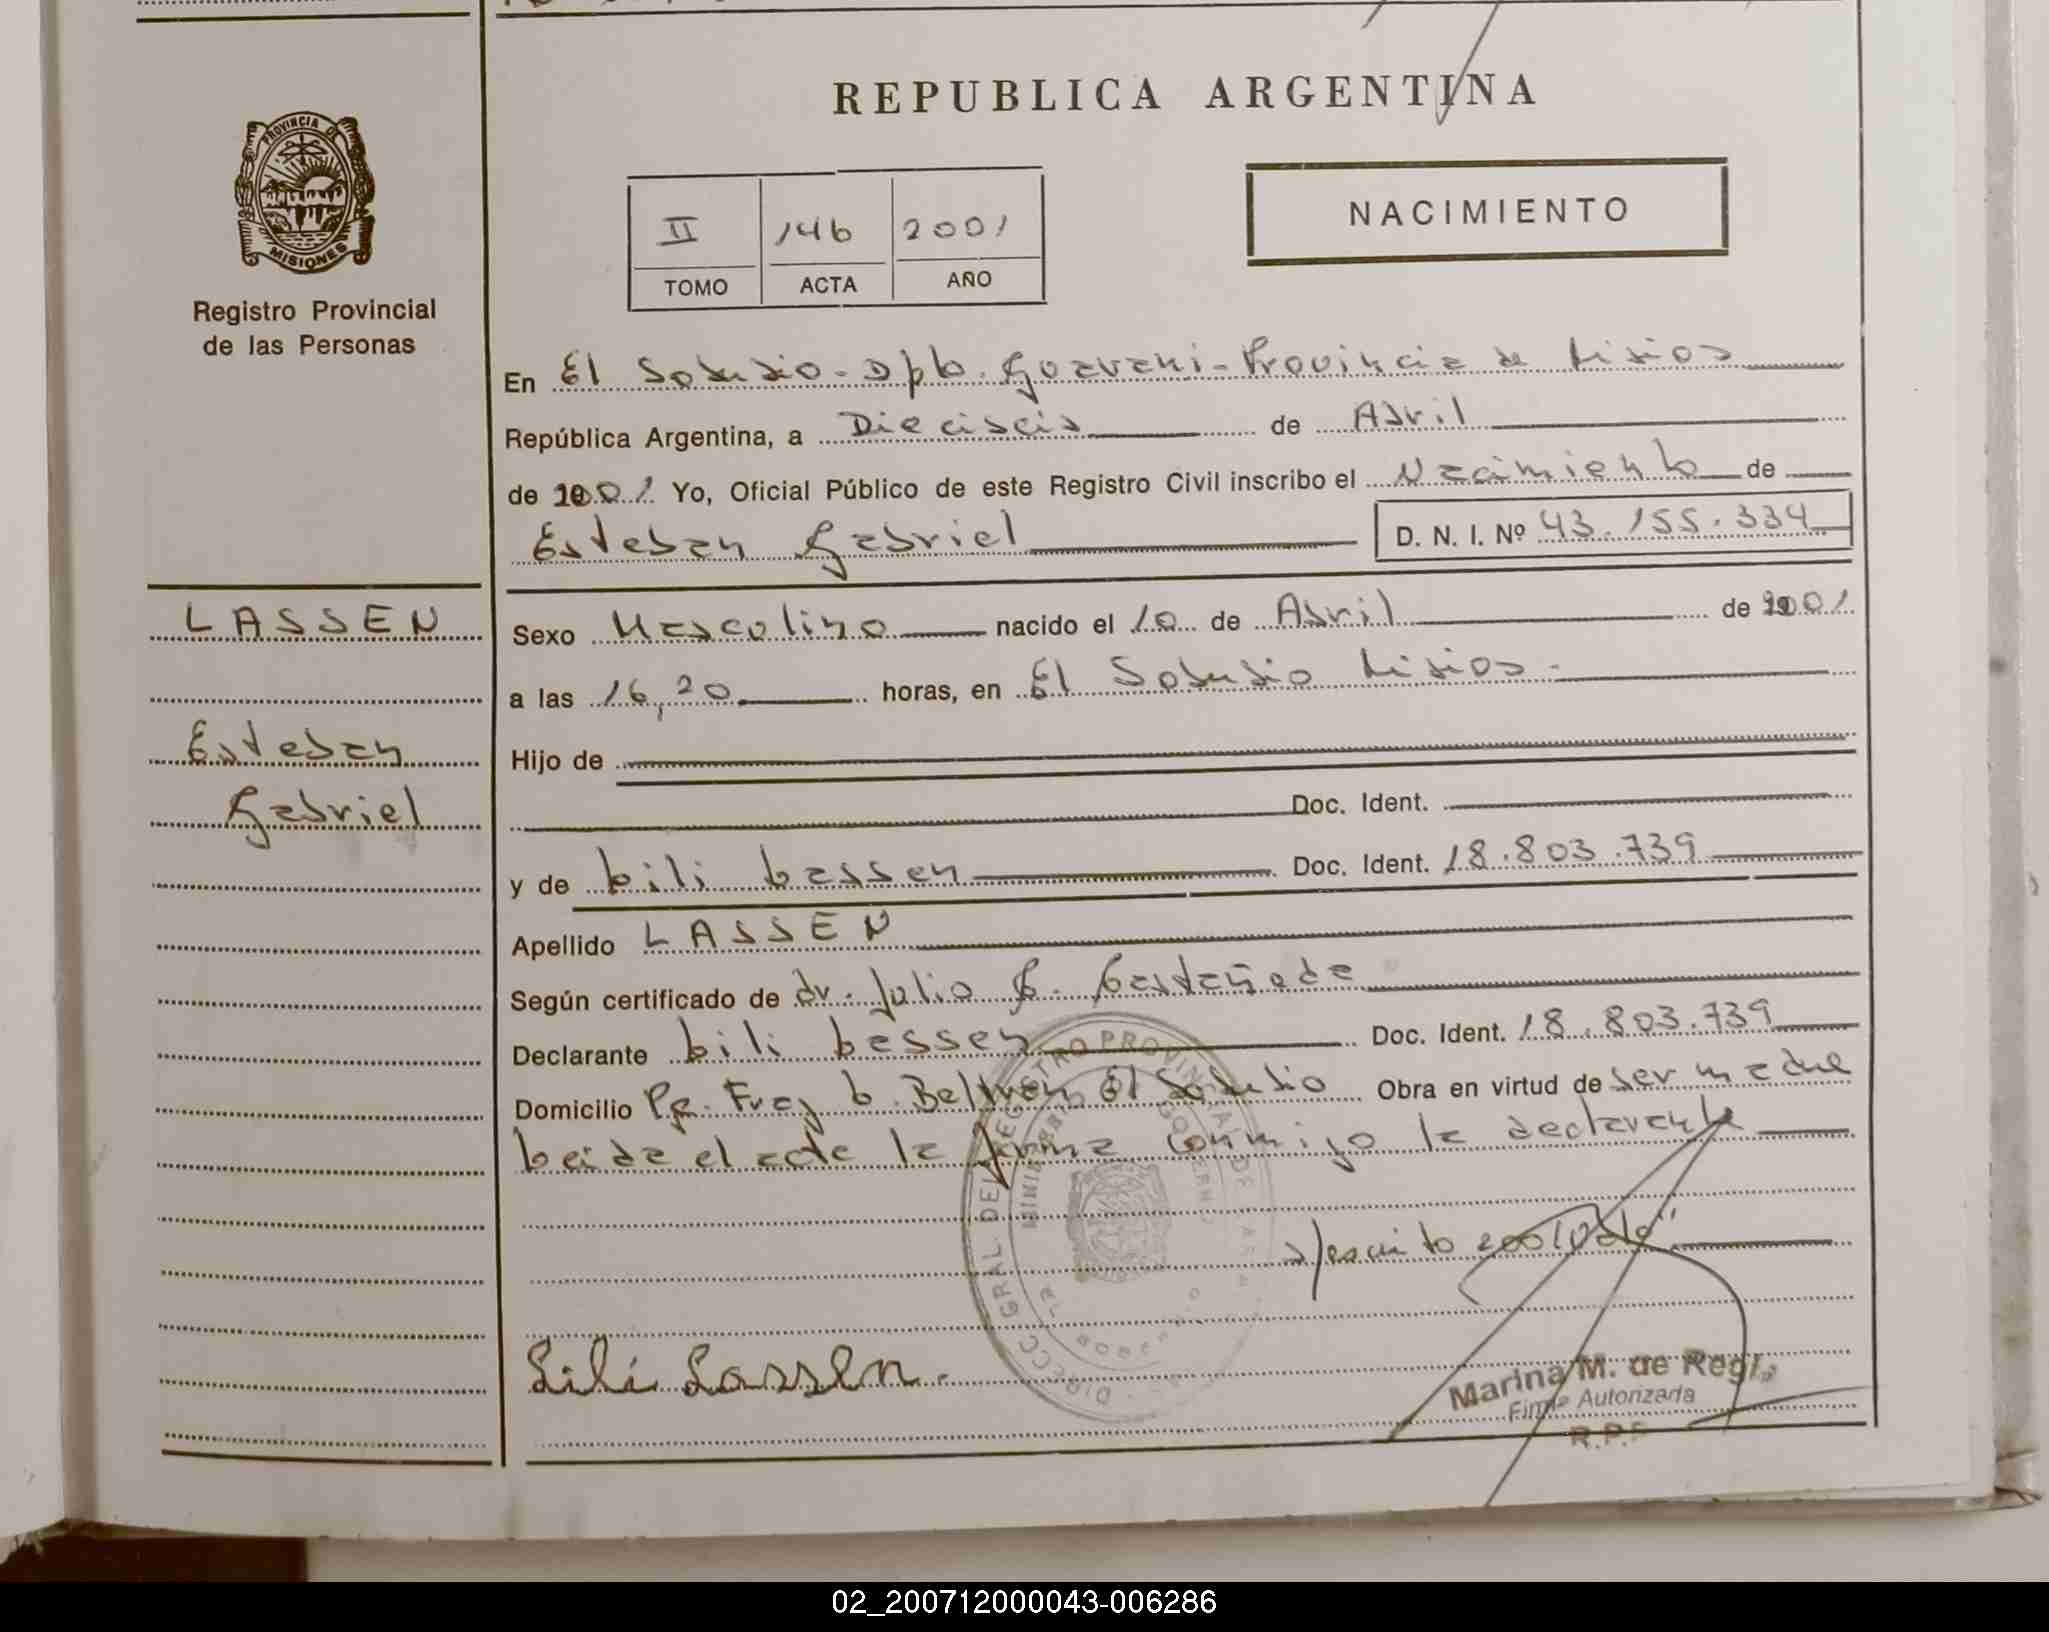 REPUBLICA ARGENTINA
PROVINCIA DE
MISIONES
Registro Provincial
de las Personas
II 146 2001
TOMO ACTA AÑO
NACIMIENTO
En El Soberbio - Dpto. Guarani - Provincia de Misiones
República Argentina, a Dieciseis de Abril
de 2001 Yo, Oficial Público de este Registro Civil inscribo el Nacimiento de
Esteban Gabriel D. N. I. Nº 43.155.334
LASSEN
Esteban
Gabriel
Sexo Masculino nacido el 10 de Abril de 2001
a las 16,20 horas, en El Soberbio Misiones.
Hijo de
Doc. Ident.
y de Lili Lassen Doc. Ident. 18.803.739
Apellido LASSEN
Según certificado de dr. Julio G. Castañeda
Declarante Lili Lassen Doc. Ident. 18.803.739
Domicilio Pje. Fray L. Beltran El Soberbio Obra en virtud de ser madre
Leida el acta la firma conmigo la declarante
s/escrito 2001
Lili Lassen.
Marina M. de Regis
Firma Autorizada
R.P.P.
02_200712000043-006286